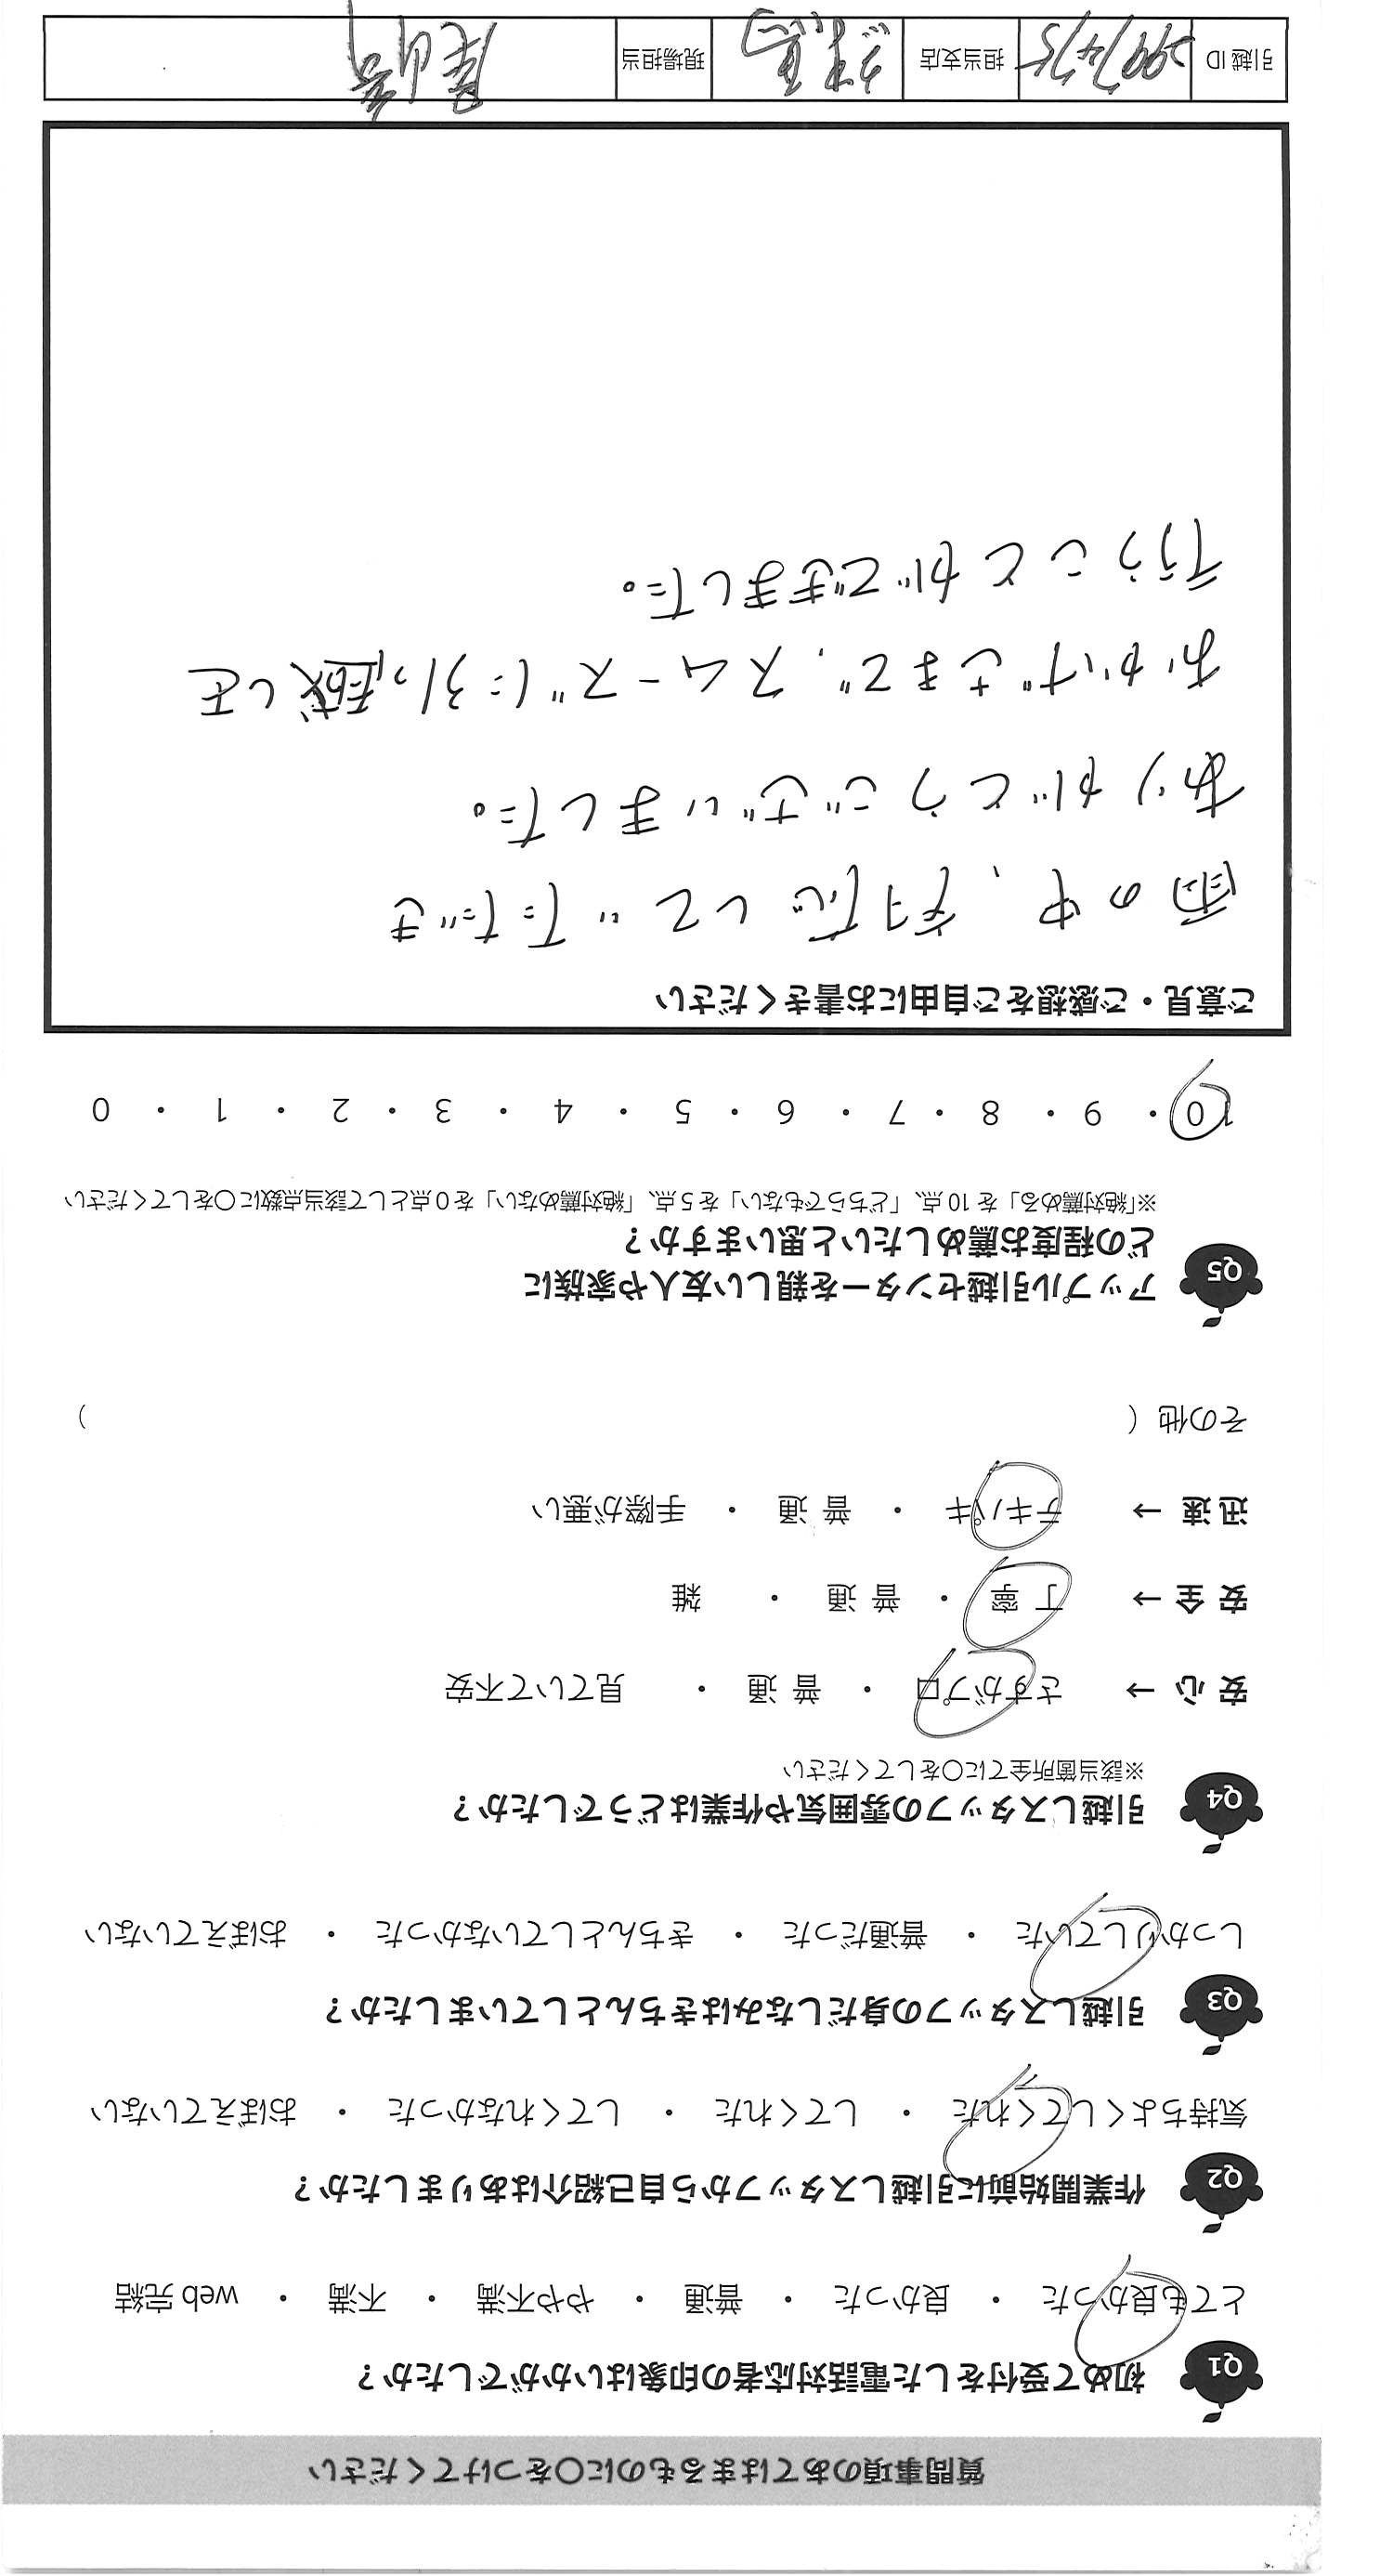 質問事項のあてはまるものに〇をつけてください
Q1 初めて受付をした電話対応者の印象はいかがでしたか？
とても良かった ・ 良かった ・ 普通 ・ やや不満 ・ 不満 ・ web 完結
Q2 作業開始前に引越しスタッフから自己紹介はありましたか？
気持ちよくしてくれた ・ してくれた ・ してくれなかった ・ おぼえていない
Q3 引越しスタッフの身だしなみはきちんとしていましたか？
しっかりしていた ・ 普通だった ・ きちんとしていなかった ・ おぼえていない
Q4 引越しスタッフの雰囲気や作業はどうでしたか？
※該当箇所全てに〇をしてください
安 心 → さすがプロ ・ 普 通 ・ 見ていて不安
安 全 → 丁 寧 ・ 普 通 ・ 雑
迅 速 → テキパキ ・ 普 通 ・ 手際が悪い
その他 ( )
Q5 アップル引越センターを親しい友人や家族に
どの程度お薦めしたいと思いますか？
※「絶対薦める」を 10 点、「どちらでもない」を 5 点、「絶対薦めない」を 0 点として該当点数に〇をしてください
10 ・ 9 ・ 8 ・ 7 ・ 6 ・ 5 ・ 4 ・ 3 ・ 2 ・ 1 ・ 0
ご意見・ご感想をご自由にお書きください
雨の中、対応していただき
ありがとうございました。
おかげさまで、スムーズに引っ越しを
行うことができました。
引越 ID 2997475 担当支店 現場担当